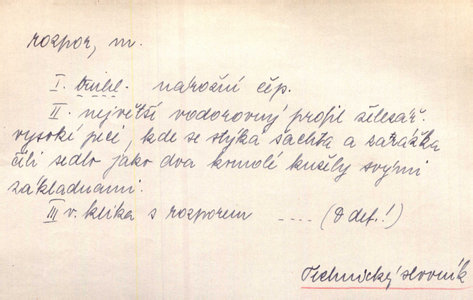 rozpor, m.
I. truhl. nárožní čep.
II. největší vodorovný profil železář.
vysoké peci, kde se stýká šachta a zarážka
čili sedlo jako dva komolé kužely svými
základnami.
III v. klika s rozporem .... (8 def.!)
Technický slovník